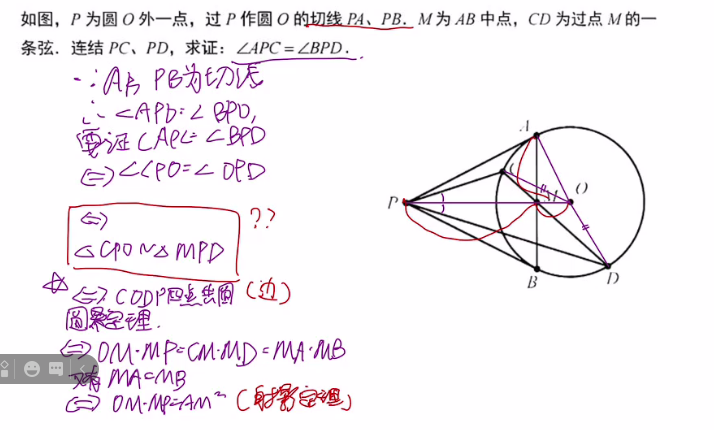 如图，P 为圆 O 外一点，过 P 作圆 O 的切线 PA、PB．M 为 AB 中点，CD 为过点 M 的一
条弦．连结 PC、PD，求证：∠APC＝∠BPD．
∵ PA, PB为切线
∴ ∠APO=∠BPO,
要证∠APC=∠BPD
⇔ ∠CPO=∠OPD
⇔
△CPO∽△MPD
??
☆ ⇔ CODP四点共圆 (边)
圆幂定理.
⇔ OM·MP=CM·MD=MA·MB
又有 MA=MB
⇔ OM·MP=AM² (射影定理)
A
C
P
M
O
B
D